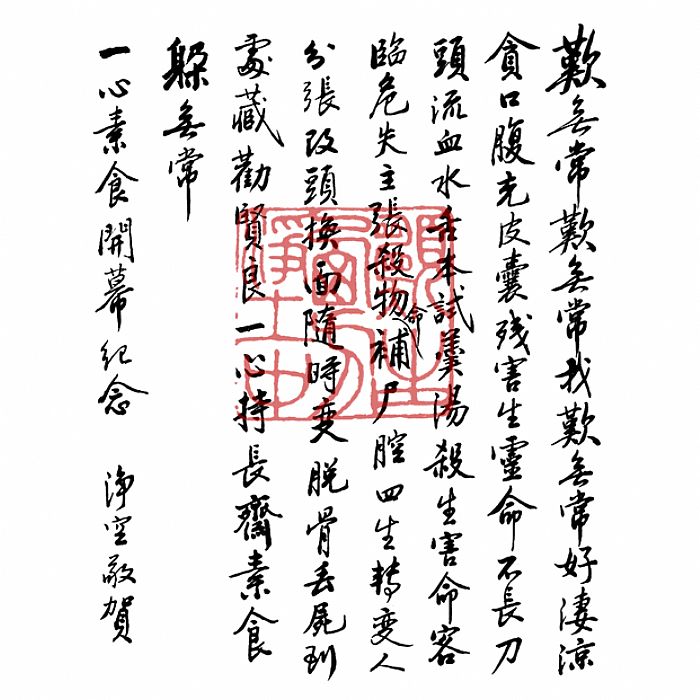 歎無常歎無常我歎無常好淒涼
貪口腹充皮囊残害生靈命不長刀
頭流血水舌本試羹湯殺生害命客
臨危失主張殺物命補尸腔四生轉变人
分張改頭換面隨時变脱骨丟屍到
處藏勸賢良一心持長齋素食
躲無常
一心素食開幕紀念 淨空敬賀
願生
西方
淨土中